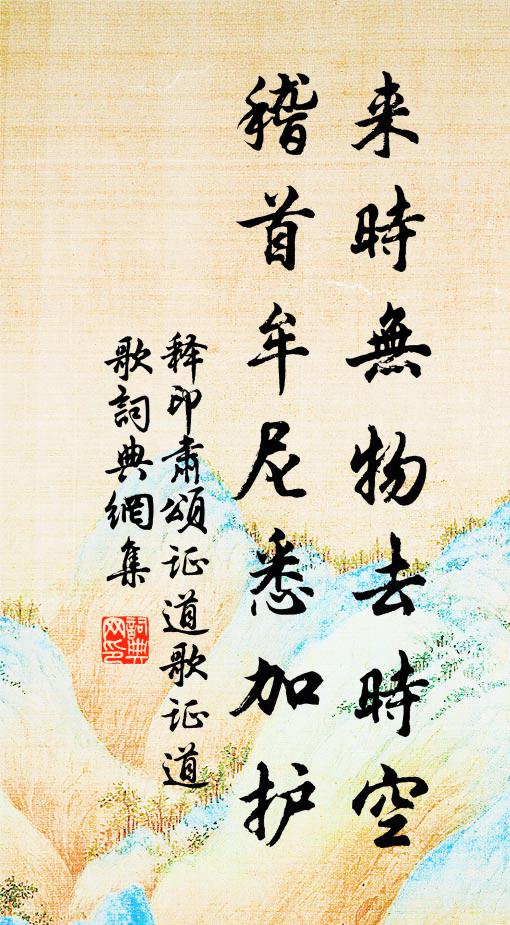 来時無物去時空
稽首牟尼悉加护
释印肅頌证道歌证道
歌詞典網集
詞典